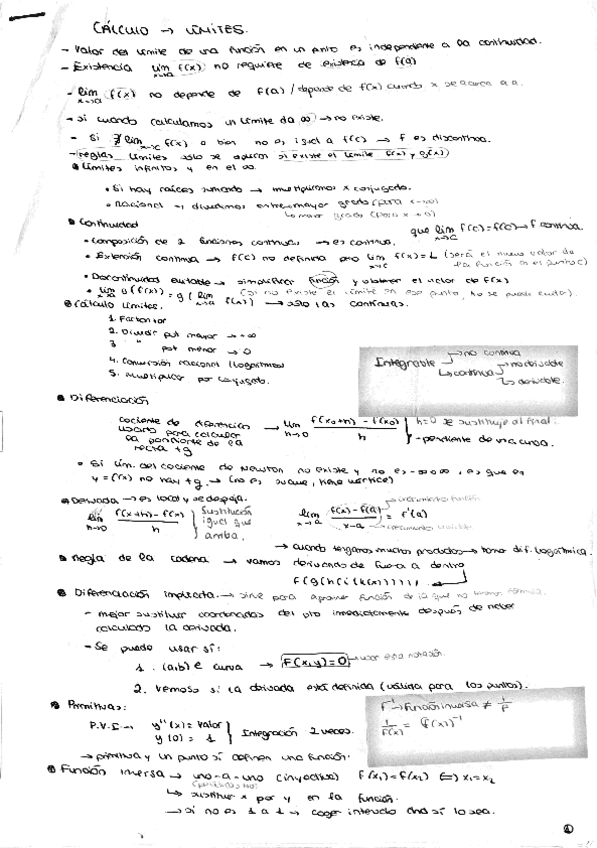 CÁLCULO → LÍMITES.
- Valor del límite de una función en un punto es independiente a la continuidad.
- Existencia lim x→a f(x) no requiere de existencia de f(a)
- lim x→a f(x) no depende de f(a) / depende de f(x) cuando x se acerca a a.
- Si cuando calculamos un límite da ∞ → no existe.
- Si ∄ lim x→c f(x) o bien no es igual a f(c) → f es discontinua.
- reglas límites solo se aplican si existe el límite f(x) y g(x)
Límites infinitos y en el ∞.
• Si hay raíces sumando → multiplicamos x conjugado.
• Racional → dividimos entre mayor grado (para x→∞)
↳ menor grado (para x→0)
Continuidad
que lim x→c f(c) = f(c) → f continua.
• Composición de 2 funciones continuas → es continua.
• Extensión continua → f(c) no definida pero lim x→c f(x) = L (será el nuevo valor de la función en el punto c)
• Discontinuidad evitable → simplificar función y obtener el valor de f(x)
(si no existe el límite en ese punto, no se puede evitar).
• lim x→a g(f(x)) = g(lim x→a f(x)) → solo las continuas.
Cálculo límites.
1. Factorizar
2. Dividir pot mayor → ∞
3. " pot menor → 0
4. Conversión racional (logaritmos)
5. Multiplicar por conjugado.
Integrable → no continua
↳ continua → no derivable
↳ derivable.
Diferenciación
cociente de diferenciación usado para calcular la pendiente de la recta tg → lim h→0 f(x₀+h) - f(x₀) / h
h=0 se sustituye al final.
- pendiente de una curva.
• Si lím. del cociente de Newton no existe y no es -∞ o ∞, es que en
y = f(x) no hay tg. → (no es suave, tiene vértice)
Derivada → es local y se despeja.
lim h→0 f(x+h) - f(x) / h } Sustitución igual que arriba.
lim x→a f(x) - f(a) / x-a = f'(a)
incremento función
incremento variable
→ cuando tengamos muchos productos → hacer dif. logarítmica.
Regla de la cadena → vamos derivando de fuera a dentro
f(g(h(i(k(x)))))
Diferenciación implícita. → sirve para
- mejor sustituir coordenadas del pto inmediatamente después de haber
calculado la derivada.
- Se puede usar si:
1. (a,b) ∈ curva → F(x,y)=0 → usar esta notación.
2. Vemos si la derivada está definida (válida para los puntos).
Primitivas:
P.V.I → y''(x) = valor
y(0) = 1 } Integración 2 veces.
f⁻¹ → Función inversa ≠ 1/f
1/f(x) = (f(x))⁻¹
→ primitiva y un punto sí definen una función.
Función inversa → uno-a-uno (inyectiva) f(x₁) = f(x₂) ⇔ x₁ = x₂
↳ sustituir x por y en la función.
→ si no es 1 a 1 → coger intervalo donde sí lo sea.
1